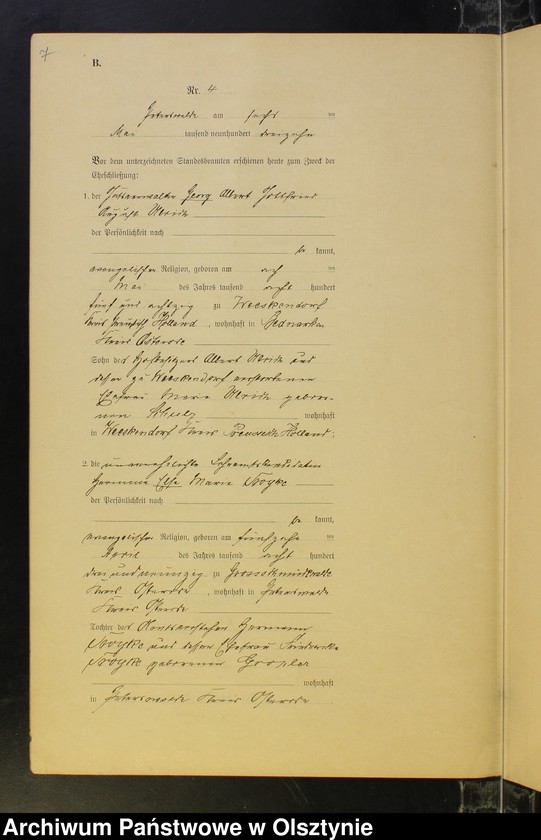 7
B.
Nr. 4
am sechs ten
Mai tausend neunhundert dreizehn
Vor dem unterzeichneten Standesbeamten erschienen heute zum Zweck der
Eheschließung:
1. der Georg Albert Gottfried
August
der Persönlichkeit nach
be kannt,
evangelischer Religion, geboren am ten
Mai des Jahres tausend acht hundert
fünf und achtzig zu Weeskendorf
Kreis Preußisch Holland, wohnhaft in Bednarken
Kreis Osterode
Sohn des Hofbesitzers Albert und
dessen zu Weeskendorf verstorbenen
Ehefrau Marie gebore-
nen Schulz wohnhaft
in Weeskendorf Kreis Preussisch Holland;
2. die unverehelichte
Hermine Else Marie
der Persönlichkeit nach
be kannt,
evangelischer Religion, geboren am fünfzehn ten
April des Jahres tausend acht hundert
drei und neunzig zu
Kreis Osterode, wohnhaft in
Kreis Osterode
Tochter des Hermann
und dessen Ehefrau Friederike
geborenen
wohnhaft
in Kreis Osterode
Archiwum Państwowe w Olsztynie